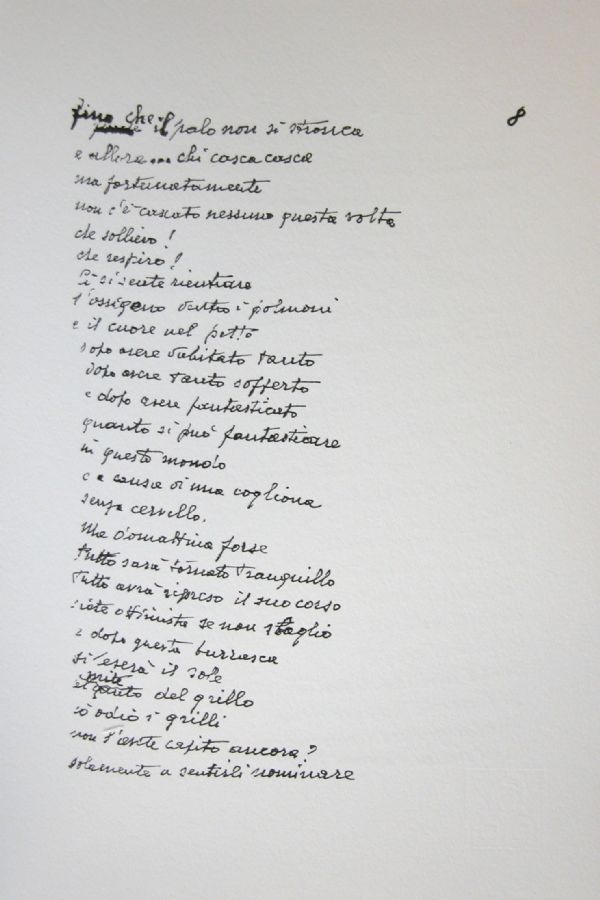 8
fino che il palo non si stronca
e allora... chi casca casca
ma fortunatamente
non c'è cascato nessuno questa volta
che sollievo!
che respiro!
si sente rientrare
l'ossigeno dentro i polmoni
e il cuore nel petto
dopo avere dubitato tanto
dopo avere tanto sofferto
e dopo avere fantasticato
quanto si può fantasticare
in questo mondo
e a causa di una cogliona
senza cervello.
Ma domattina forse
tutto sarà tornato tranquillo
tutto avrà ripreso il suo corso
siete ottimista se non sbaglio
e dopo questa burrasca
il sole
del grillo
io odio i grilli
non l'avete capito ancora?
solamente a sentirli nominare